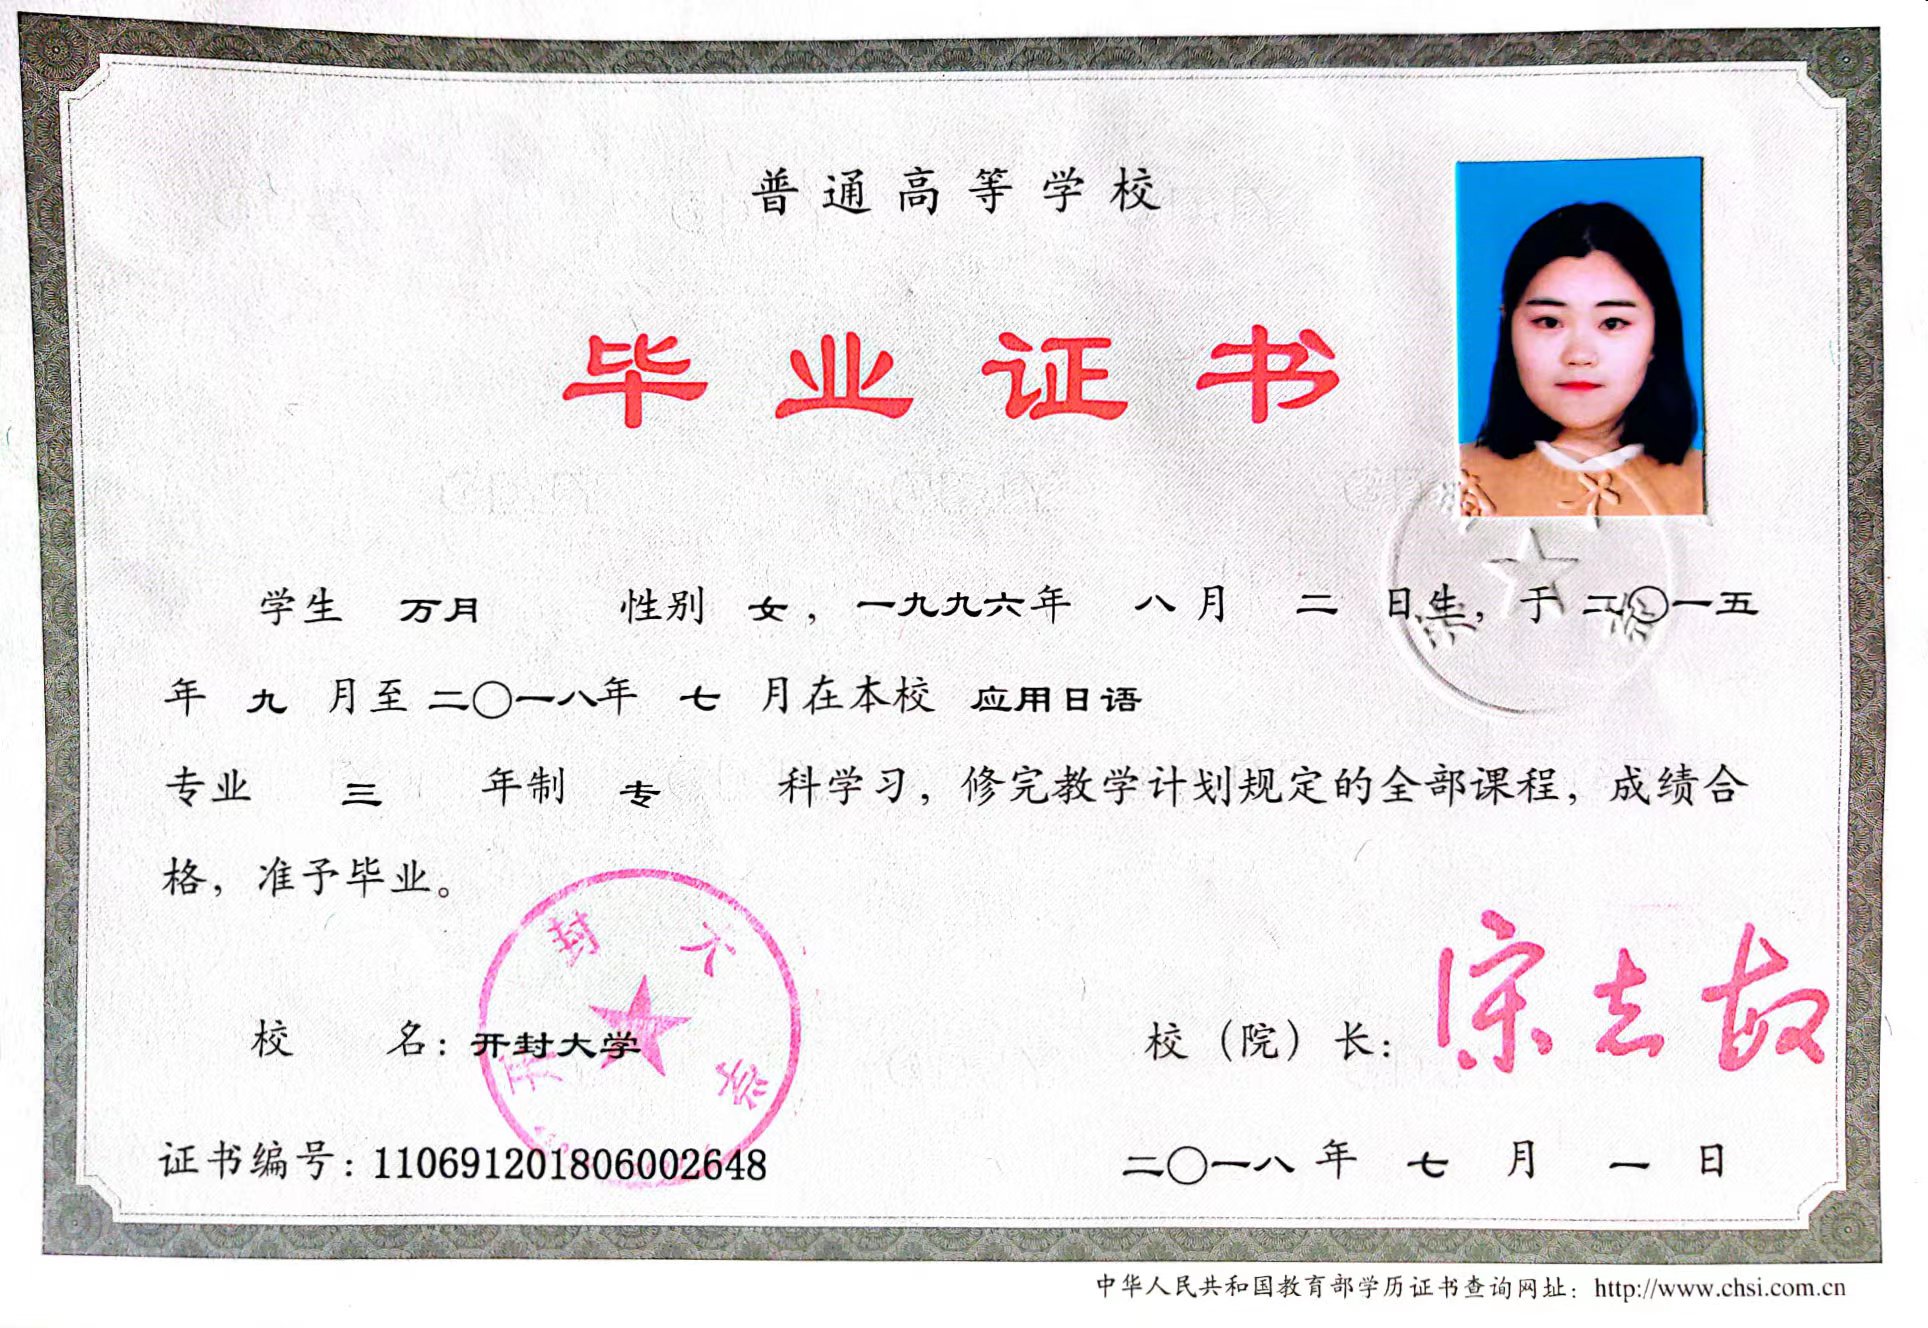 普通高等学校
毕业证书
学生 万月 性别 女，一九九六年 八月 二 日生，于二〇一五
年 九 月至二〇一八年 七 月在本校 应用日语
专业 三 年制 专 科学习，修完教学计划规定的全部课程，成绩合
格，准予毕业。
开封大学
校 名：开封大学
校（院）长：
证书编号：110691201806002648
二〇一八年 七 月 一 日
中华人民共和国教育部学历证书查询网址：http://www.chsi.com.cn